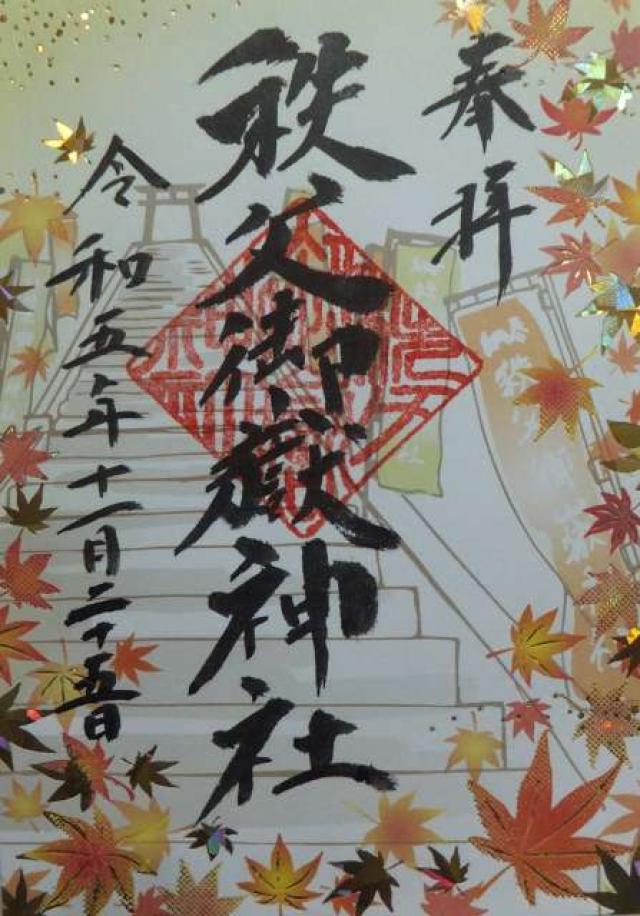 奉拝
秩父御嶽神社
令和五年十一月二十五日